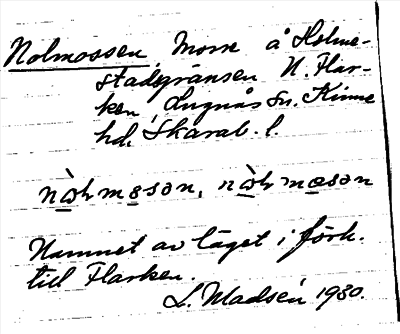 Nolmossen, Mosse å Holme-
stadsgränsen N. Flar-
ken, Lugnås sn. Kinne
hd, Skarab. l.
Namnet av läget i förh.
till Flarken.
L. Madsén 1930.